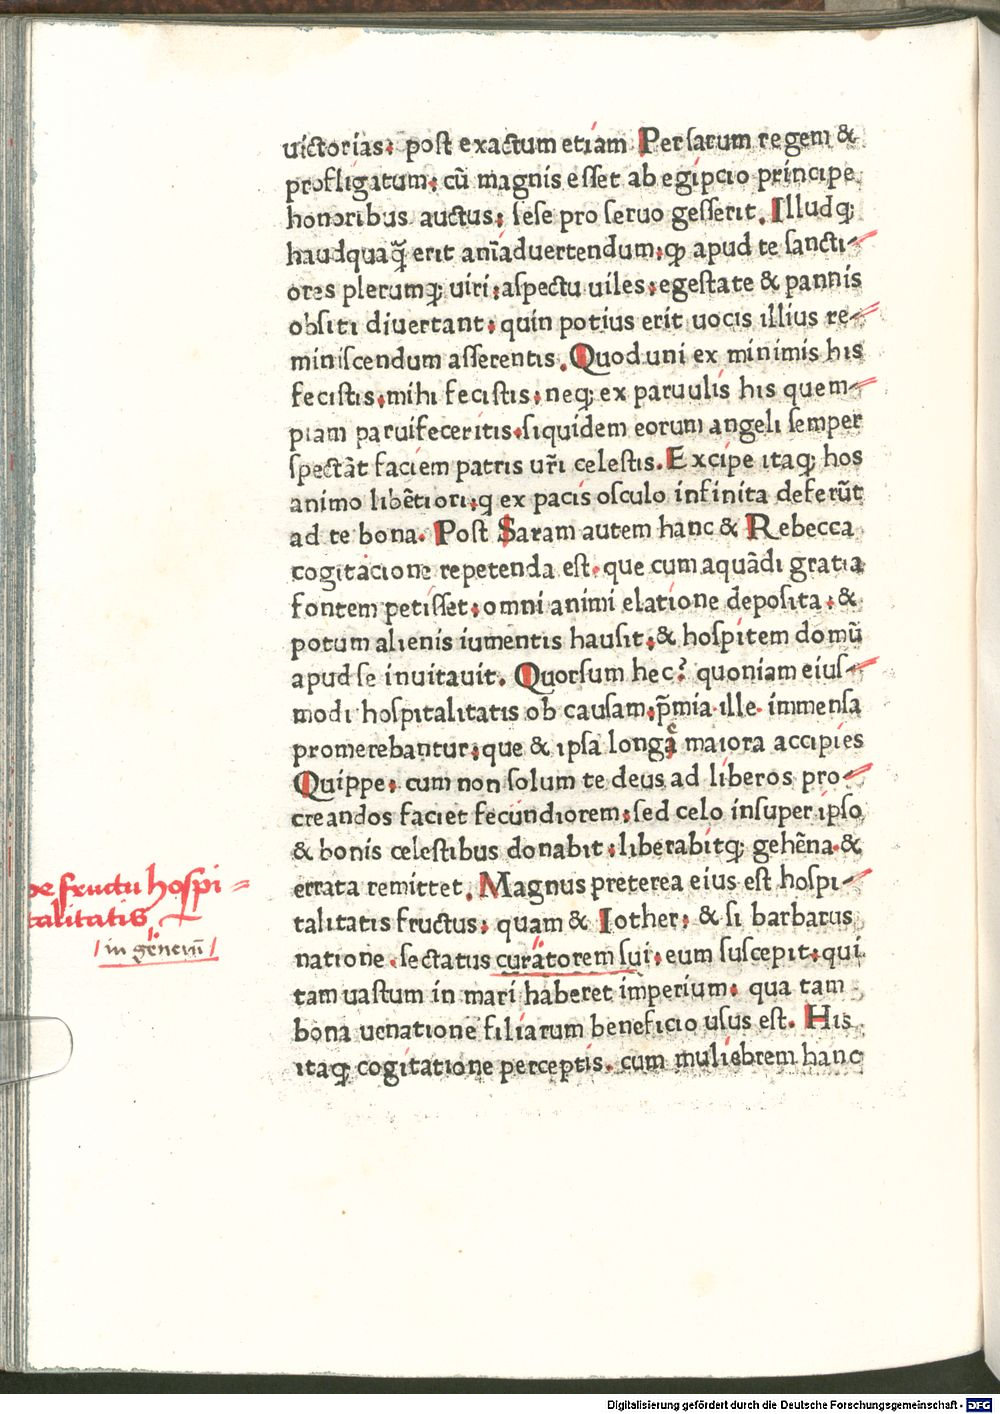 uictorias: post exactum etiam Persarum regem &
profligatum: cū magnis esset ab egipcio principe
honoribus auctus: sese pro seruo gesserit. Illudqꝫ
haudquaq̃ erit aniāduertendum: ꝙ apud te sancti-
ores plerumqꝫ uiri: aspectu uiles: egestate & pannis
obsiti diuertant: quin potius erit uocis illius re-
miniscendum asserentis. Quod uni ex minimis his
fecistis: mihi fecistis: neqꝫ ex paruulis his quem-
piam paruifeceritis: siquidem eorum angeli semper
spectāt faciem patris ur̄i celestis. Excipe itaqꝫ hos
animo libētiori: q ex pacis osculo infinita deferūt
ad te bona. Post Saram autem hanc & Rebecca
cogitacione repetenda est. que cum aquādi gratia
fontem petisset: omni animi elatione deposita: &
potum alienis iumentis hausit: & hospitem domū
apud se inuitauit. Quorsum hec? quoniam eius-
modi hospitalitatis ob causam: p̄mia ille immensa
promerebantur: que & ipsa longe maiora accipies
Quippe: cum non solum te deus ad liberos pro-
creandos faciet fecundiorem: sed celo insuper ipso
& bonis celestibus donabit: liberabitqꝫ gehēna &
errata remittet. Magnus preterea eius est hospi-
talitatis fructus: quam & Iother: & si barbarus
natione. sectatus curatorem sui: eum suscepit: qui
tam uastum in mari haberet imperium: qua tam
bona uenatione filiarum beneficio usus est. His
itaqꝫ cogitatione perceptis. cum muliebrem hanc
De fructu hospi=
talitatis
in
Digitalisierung gefördert durch die Deutsche Forschungsgemeinschaft - DFG